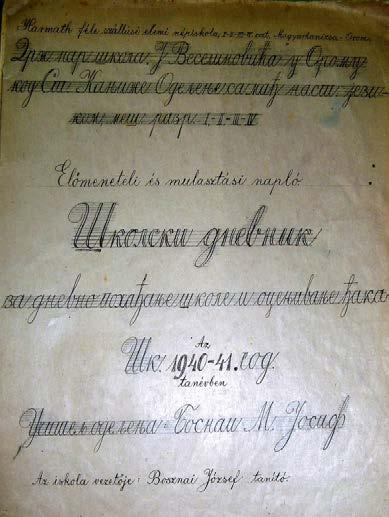 Harmath féle szállási elemi népiskola, I-II-III-IV. oszt. Magyarkanizsa - Orom.
Држ. нар. школа. У Веселиновића у Орому
код Ст. Кањиже Одељење са мађ. наст. јези-
ком меш. разр. I.-II-III-IV
Előmeneteli és mulasztási napló
Школски дневник
за дневно похађање школе и оцењивање ђака
Az
Шк. 1940-41. год.
tanévben
Учитељ одељења - Боснаи М. Јосиф
Az iskola vezetője: Bosznai József tanító.